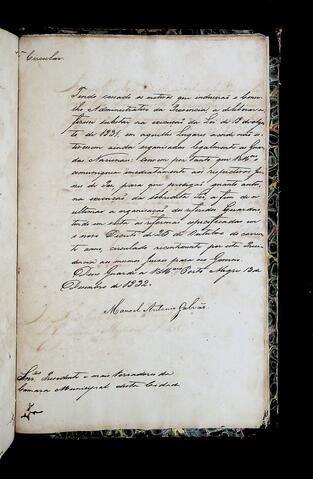 Circular
Tendo cessado os motivos que induzirão o Conse-
lho Administrativo da Provincia, a deliberar
fizesse sustar na execução da Lei de 18 de Agos-
to de 1831, em aquelles Lugares aonde não es-
tivessem ainda organisadas legalmente as Guar-
das Nacionaes: Convem por tanto que VMces
communiquem immediatamente aos respectivos Jui-
zes de Paz para que prosigão quanto antes,
na execução da sobredita Lei, a fim de se
ultimar a organisação das referidas Guardas,
tendo em vista as reformas especificadas em
o novo Decreto de 25 de Outubro do corren-
te anno, circulado recentemente por esta Presi-
dencia aos mesmos Juizes para seu Governo.
Deos Guarde a VMces Porto Alegre 12 de
Dezembro de 1832.
Manoel Antonio Galvão
Snres Presidente e mais Vereadores da
Camara Municipal desta Cidade